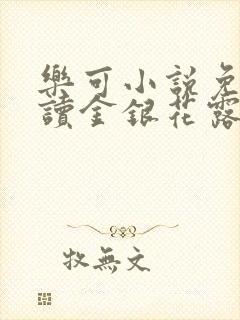 樂可小說免
讀金銀花露
牧無文